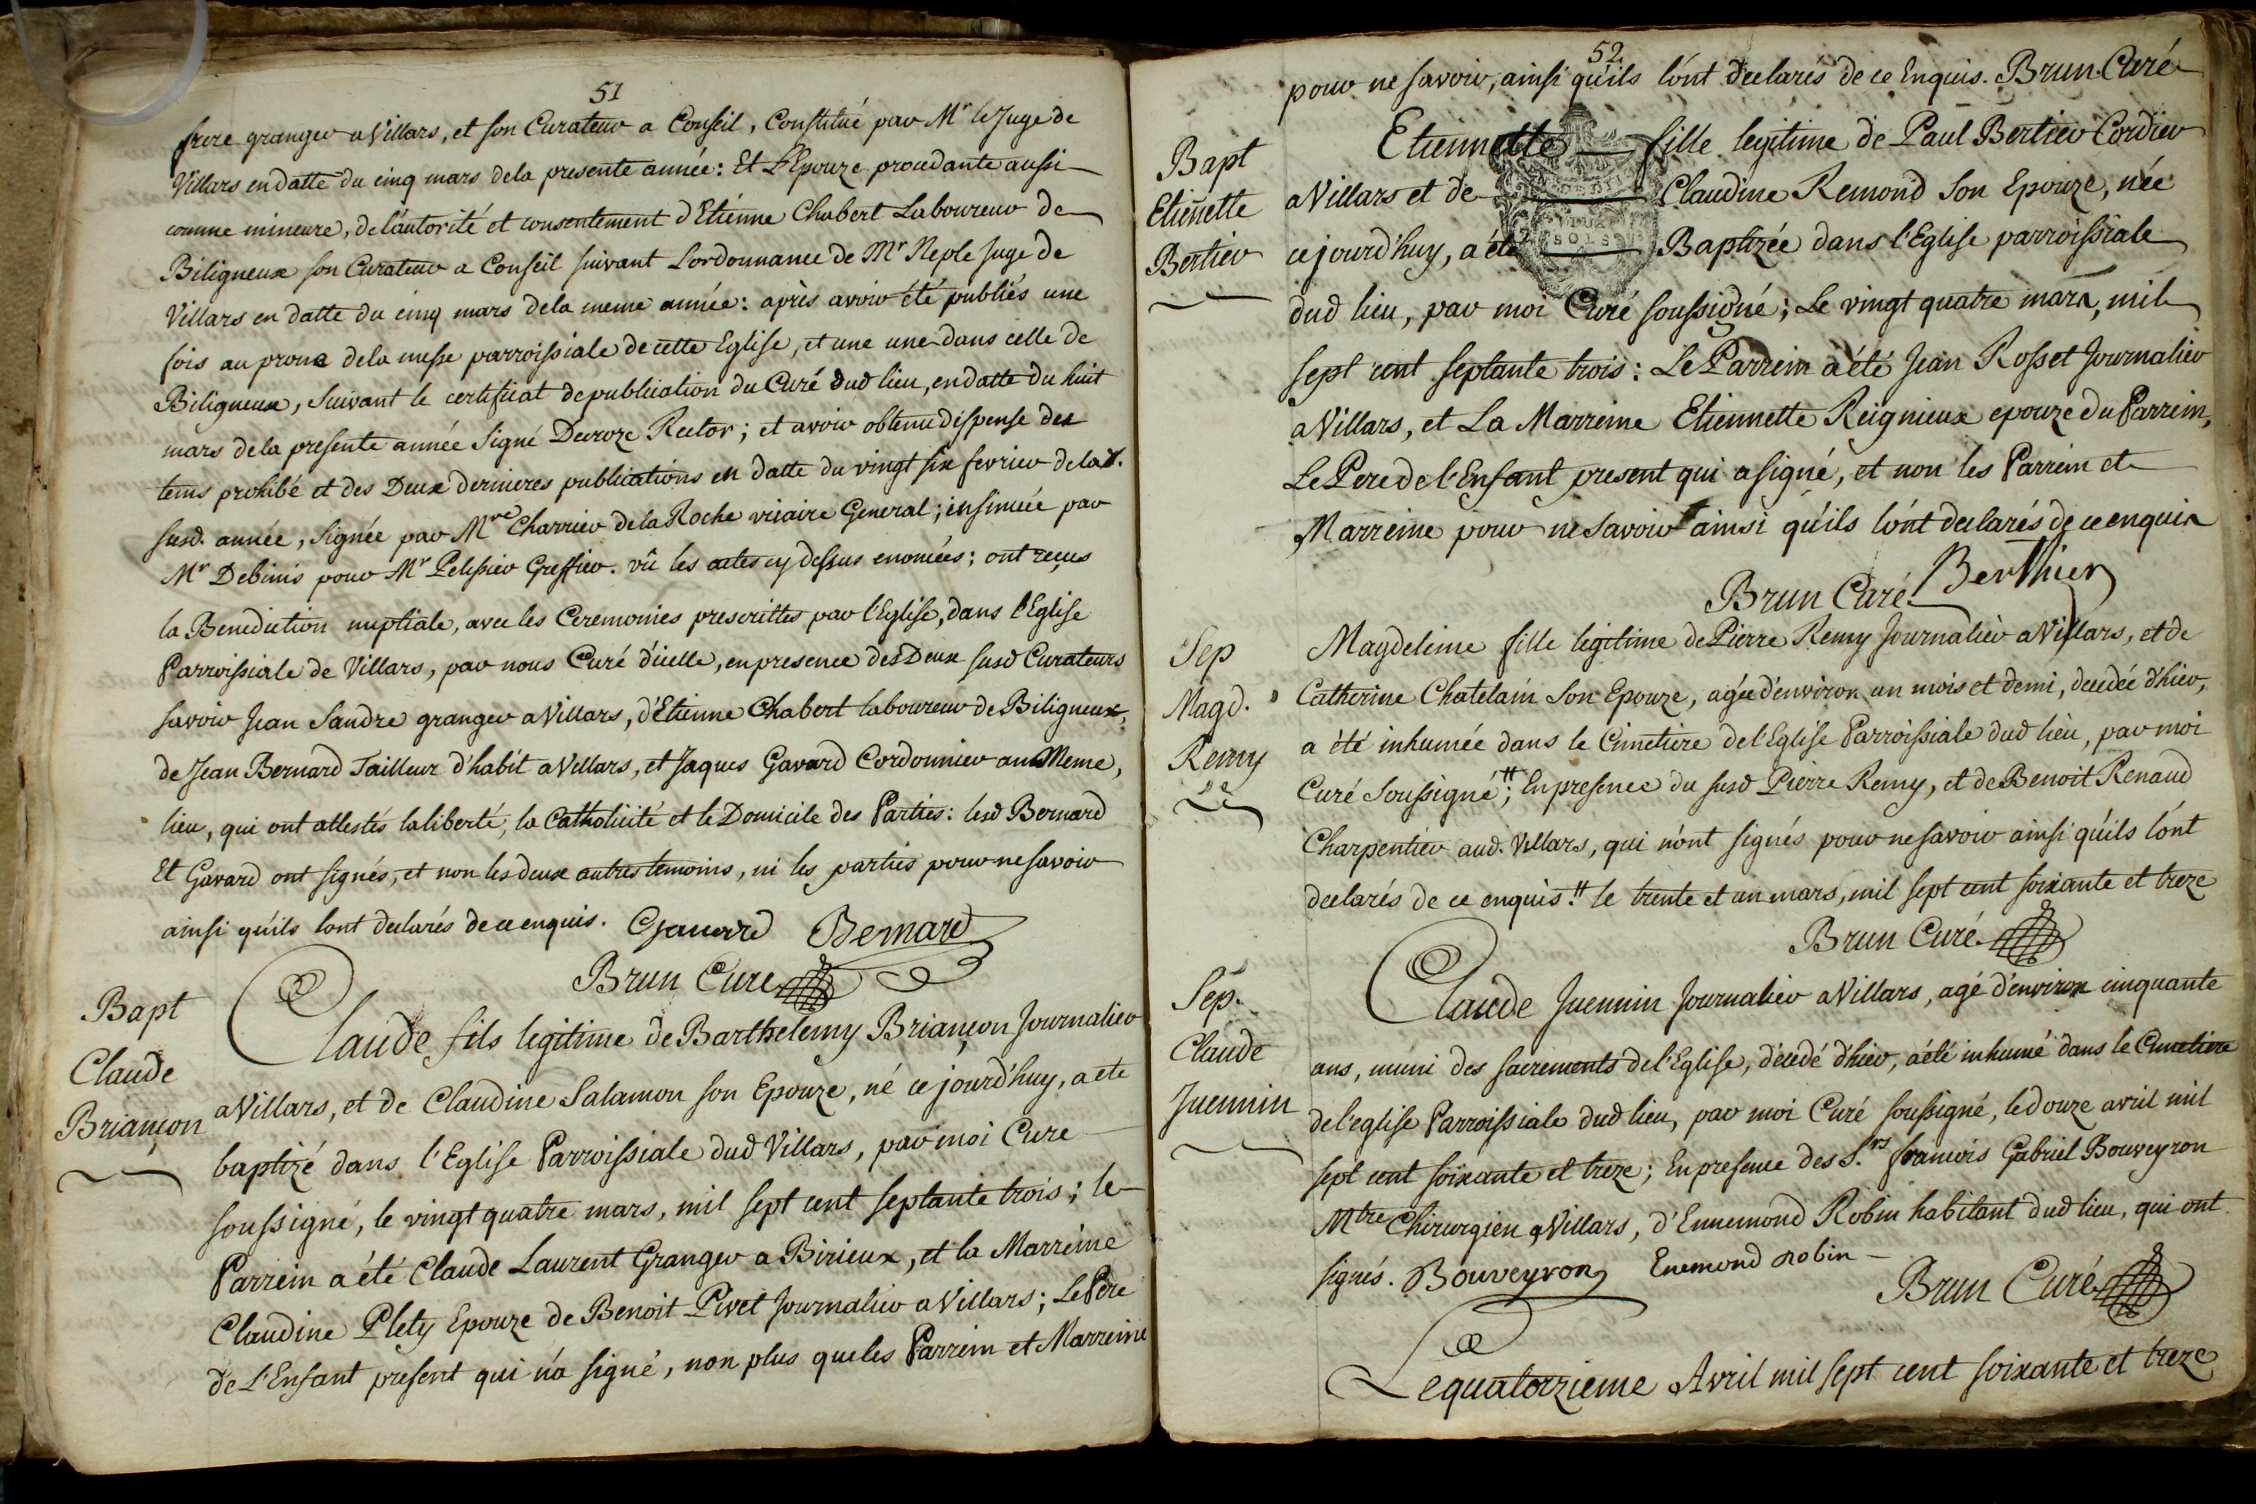 51
frere granger a Villars, et son Curateur a Conseil, Constitué par Mr le Juge de
Villars en datte du cinq mars de la presente année: Et L'Epouze procedante aussi
comme mineure, de l'autorité et consentement d'Etienne Chabert Laboureur de
Biligneux son Curateur a Conseil suivant L'ordonnance de Mr Neple Juge de
Villars en datte du cinq mars de la meme année: après avoir été publiés une
fois au prone de la messe parroissiale de cette Eglise, et une une dans celle de
Biligneux, Suivant le certificat de publication du Curé dud lieu, en datte du huit
mars de la presente année Signé Decroze Rector; et avoir obtenu dispense des
tems prohibé et des Deux dernieres publications en datte du vingt six fevrier de la
susd. année, Signée par Mre Charrier de la Roche vicaire General; insinuée par
Mr Debinis pour Mr Pelissier Greffier. vû les actes cy dessus enoncées; ont reçus
la Benediction nuptiale, avec les Ceremonies prescrittes par l'Eglise, dans l'Eglise
Parroissiale de Villars, par nous Curé d'icelle, en presence des Deux susd Curateurs
savoir Jean Sandre granger a Villars, d'Etienne Chabert laboureur de Biligneux,
de Jean Bernard Tailleur d'habit a Villars, et Jaques Gavard Cordonnier au Meme,
lieu, qui ont attestés la liberté, la Catholicité et le Domicile des Parties: lesd Bernard
Et Gavard ont signés, et non les deux autres temoins, ni les parties pour ne savoir
ainsi qu'ils lont declarés de ce enquis. Gavard Bernard
Brun Cure
Bapt
Claude
Briançon
Claude fils legitime de Barthelemy Briançon Journalier
a Villars, et de Claudine Salamon son Epouze, né ce jourd'huy, a ete
baptizé dans l'Eglise Parroissiale dud Villars, par moi Cure
soussigné, le vingt quatre mars, mil sept cent septante trois; le
Parrein a été Claude Laurent Granger a Birieux, et la Marreine
Claudine Plety Epouze de Benoit Pivet Journalier a Villars; Le Pere
de L'Enfant present qui n'a signé, non plus que les Parrein et Marreine
52
pour ne savoir, ainsi qu'ils l'ont declarés de ce Enquis. Brun Curé
Bapt
Etiennette
Bertier
Etiennette fille legitime de Paul Bertier Cordier
a Villars et de Claudine Remond Son Epouze, née
ce jourd'huy, a été Baptizée dans l'Eglise parroissiale
dud lieu, par moi Curé soussigné; Le vingt quatre mars, mil
sept cent septante trois: Le Parrein a été Jean Rosset Journalier
a Villars, et La Marreine Etiennette Reignieux epouze du Parrein,
Le Pere de l'Enfant present qui a signé, et non les Parrein et
Marreine pour ne savoir ainsi qu'ils l'ont declarés de ce enquis
Brun Curé Berthier
Sep
Magd.
Remy
Magdeleine fille legitime de Pierre Remy Journalier a Villars, et de
Catherine Chatelain Son Epouze, agée d'environ un mois et demi, decedée d'hier,
a été inhumée dans le Cimetiere de l'Eglise Parroissiale dud lieu, par moi
Curé Soussigné"; En presence du susd Pierre Remy, et de Benoit Renaud
Charpentier aud. Villars, qui n'ont signés pour ne savoir ainsi qu'ils l'ont
declarés de ce enquis." le trente et un mars, mil sept cent soixante et treze
Brun Curé
Sep.
Claude
Juennin
Claude Juennin Journalier a Villars, agé d'environ cinquante
ans, muni des sacrements de l'Eglise, decedé d'hier, a été inhumé dans le Cimetiere
de l'eglise Parroissiale dud lieu, par moi Curé soussigné, le douze avril mil
sept cent soixante et treze; En presence des S.rs francois Gabriel Bouveyron
Mtre Chirurgien a Villars, d'Ennemond Robin habitant dud lieu, qui ont
signés. Bouveyron Enemond robin
Brun Curé
Le quatorzieme Avril mil sept cent soixante et treze